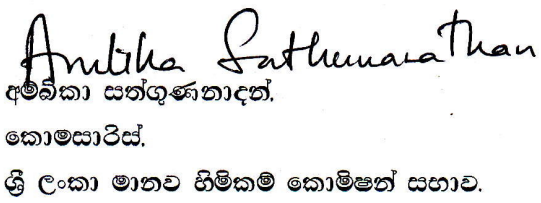 Ambika Satkunanathan
අම්බිකා සත්ගුණනාදන්.
කොමසාරිස්.
ශ්‍රී ලංකා මානව හිමිකම් කොමිෂන් සභාව.